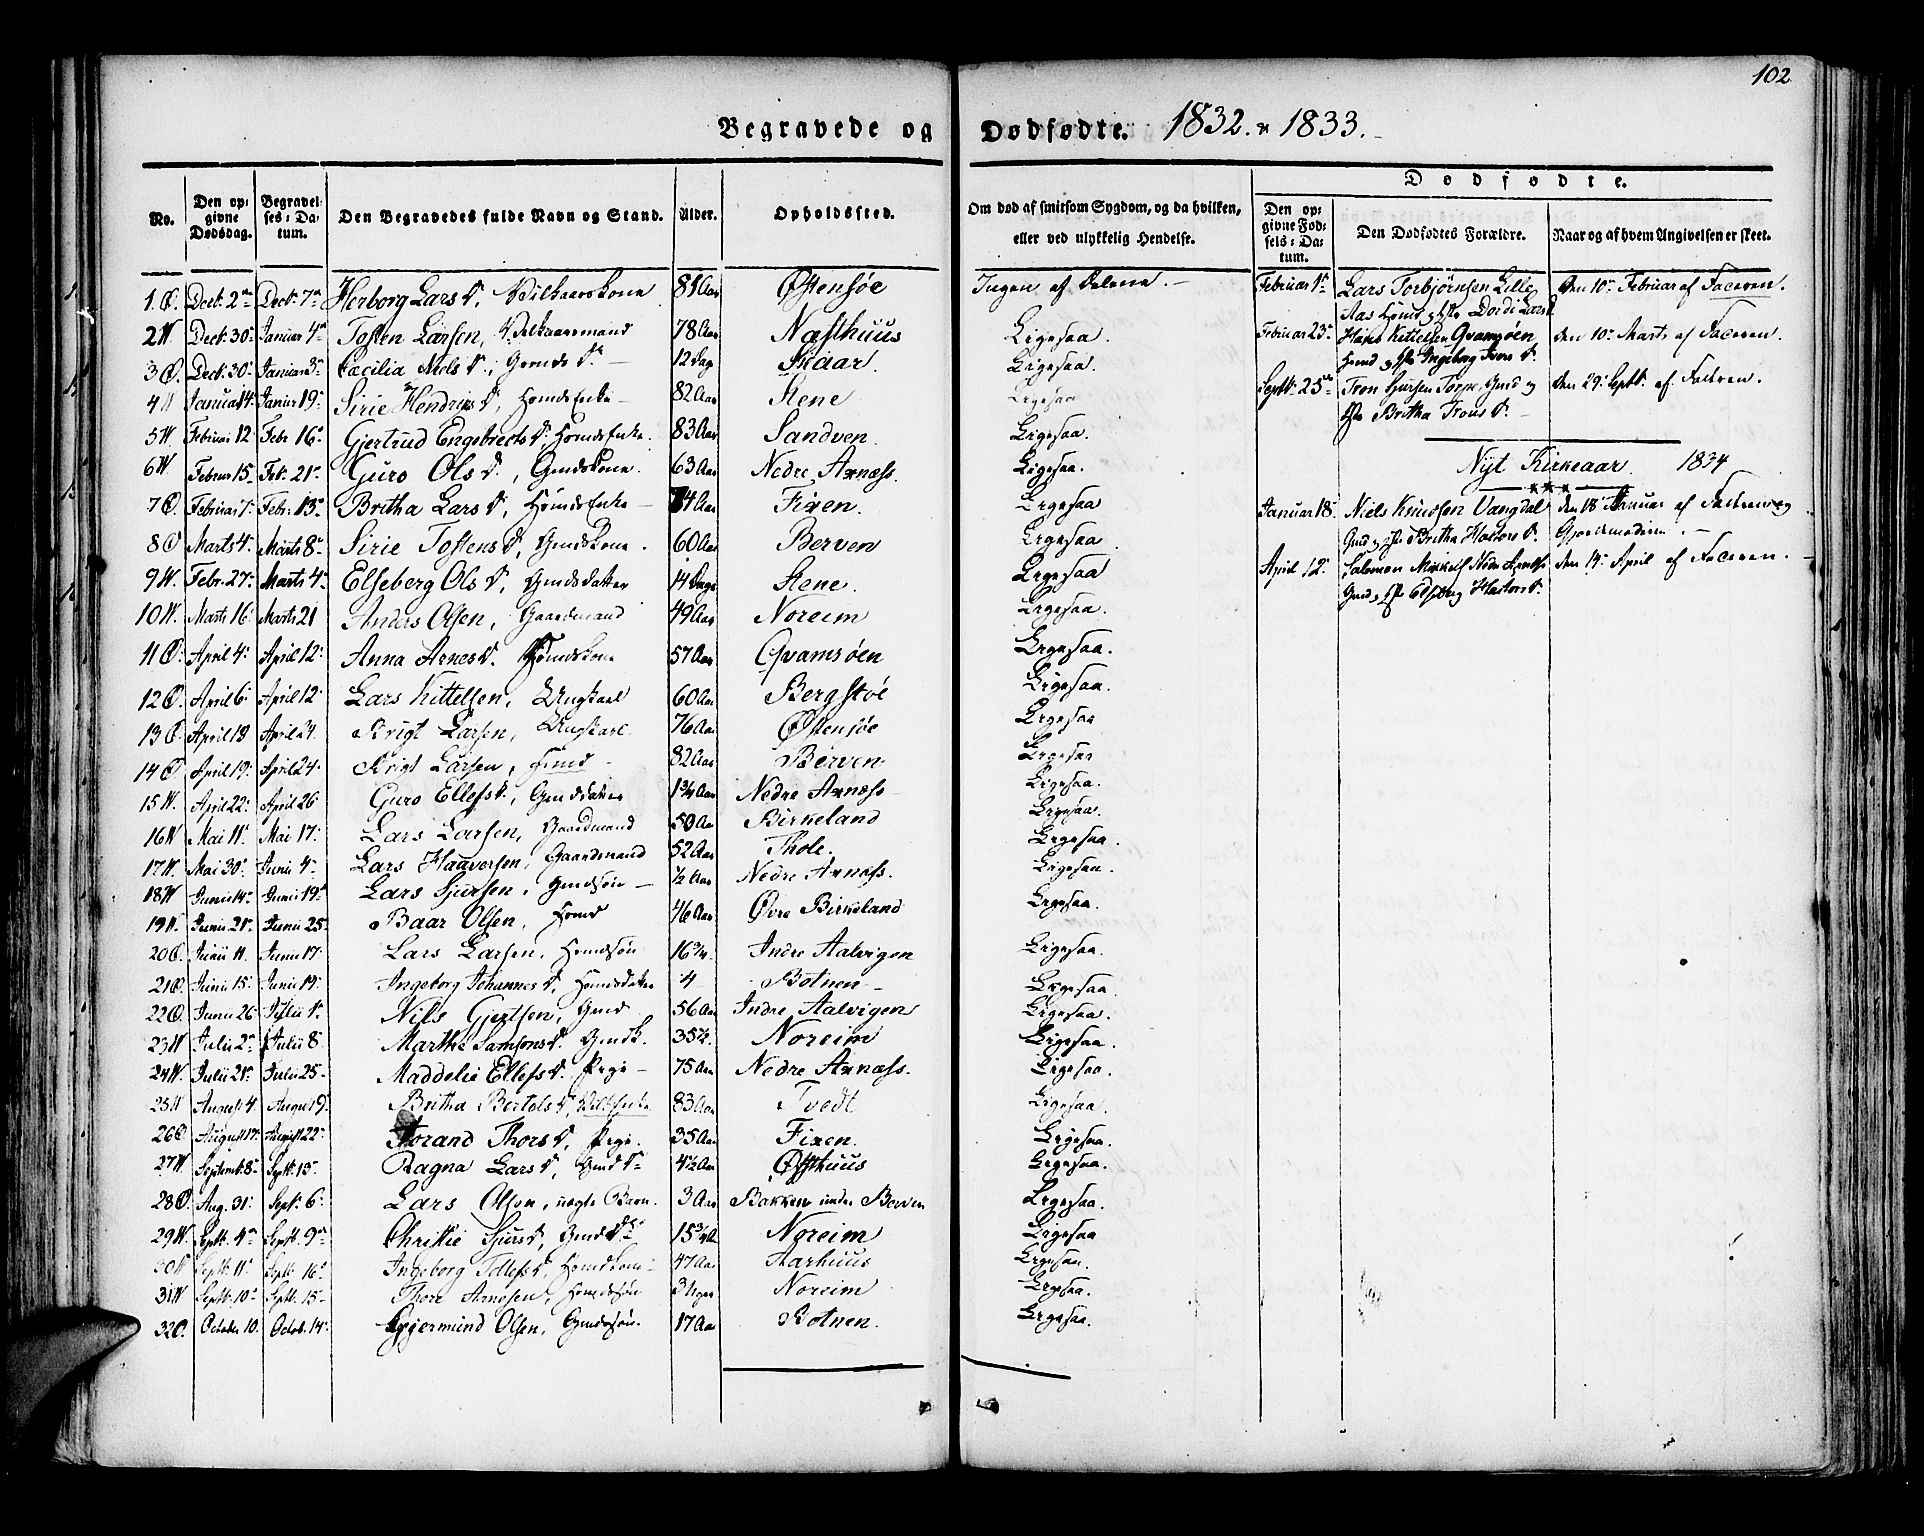 102
Begravede og Dødfødte. 1832 & 1833.
No.
Den opgivne Dødsdag.
Begravelses-Datum.
Den Begravedes fulde Navn og Stand.
Alder.
Opholdssted.
Om død af smitsom Sygdom, og da hvilken, eller ved ulykkelig Hendelse.
Dødfødte.
Den opgivne Fødsels-Datum.
Den Dødfødtes Forældre.
Naar og af hvem Angivelsen er skeet.
1 Ø. Decbr. 2den Decbr. 7de Herborg Larsd. Vilkaarskone 81 Aar Østensøe Ingen af Delene.
2 V. Decbr. 30 Januar 4de Tosten Larsen, Vilkaarsmand 78 Aar Næsthuus Ligesaa.
3 Ø. Decbr. 30 Januar 3 Cæcilia Nielsd., Gmds Dr 12 Dage Skaar. Ligesaa.
4 V Januar 14 Januar 19 Sirie Hendriksd., Hmds Enke 82 Aar Stene Ligesaa
5 V. Februar 12 Febr 16 Gjertrud Engebrectsd. Hmds Enke. 83 Aar Sandven. Ligesaa.
6 V Februar 15 Feb. 21 Guro Olsd., Gmdskone. 63 Aar Nedre Arnæss. Ligesaa.
7 Ø. Februar 7 Febr. 13 Britha Larsd., Hmds Enke 74 Aar Fixen. Ligesaa
8 Ø Marts 4 Marts 8 Sirie Tostensd., Gmdskone. 60 Aar Berven Ligesaa.
9 V. Febr. 27 Marts 4 Elseberg Olsd., Gmdsdatter 14 Dage Stene. Ligesaa
10 V. Marts 16 Marts 21 Anders Olsen, Gaardmand 49 Aar Noreim Ligesaa.
11 Ø. April 4 April 12 Anna Arnesd. Hmdskone 57 Aar Qvamsøen Ligesaa.
12 Ø. April 6 April 12 Lars Kittelsen, Ungkarl 60 Aar Bergstøe Ligesaa.
13 Ø. April 18 April 24 Brigt Larsen, Ungkarl 76 Aar Østensøe Ligesaa
14 Ø April 19 April 24 Brigt Larsen, Hmd 82 Aar Berven Ligesaa
15 V. April 22 April 26 Guro Ellefsd., Gmdsdatter 1 3/4 Aar Nedre Arnæss Ligesaa.
16 V Mai 11 Mai 17 Lars Larsen, Gaardmand 50 Aar Birkeland Ligesaa.
17 V. Mai 30 Junii 4 Lars Haaversen, Gaardmand 52 Aar Thole. Ligesaa.
18 V Junii 14 Junii 19 Lars Sjursen, Gmdsøn 1/2 Aar Nedre Arnæss. Ligesaa.
19 V. Junii 21 Junii 25 Baar Olsen, Hmd 46 Aar Øvre Birkeland Ligesaa.
20 Ø. Junii 11 Junii 17 Lars Larsen, Hmdsøn 16 Indre Aalvigen Ligesaa.
21 Ø Junii 15 Junii 19 Ingeborg Johannesd., Hmdsdatter 4 Botnen Ligesaa.
22 Ø. Junii 26 Julii Nils Gjertsen, Gmd 56 Aar Indre Aalvigen Ligesaa.
23 V Julii 2 Julii 8 Marthe Samsonsd. Gmdk. 35 1/2 Noreim Ligesaa.
24 V. Julii 21 Julii 25 Maddelie Ellefsd. Pige 75 Aar Nedre Arnæss. Ligesaa.
25 V August 4 August 9 Britha Bertelsd., Vilkaars Enke 83 Aar Tvedt Ligesaa.
26 Ø. August 17 August 22 Torand Thorsd., Pige. 35 Aar Fixen. Ligesaa.
27 V. Septemb. 8 Septb. 13 Ragna Larsd., Gmds Dr 4 1/2 Aar Østhuus Ligesaa.
28 Ø. Aug. 31 Septb. 6 Lars Olsen, uægte Barn. 3 Aar Bakken under Berven Ligesaa.
29 V. Septb. 4 Septb. 9 Christie Sjursd., Gmds Dr 15 3/4 A Noreim Ligesaa
30 V Septb. 11 Septb. 16 Ingeborg Tollefsd., Hmdskone 47 Aar Aarhuus Ligesaa.
31 V Septb. 10 Septb. 15 Thore Arnesen, Hmdssøn 3 Uger Noreim Ligesaa.
32 Ø. October 10 Octob. 14 Gjermund Olsen, Gmdssøn. 17 Aar Botnen. Ligesaa.
Februar 1 Lars Torbjørnsen Lille Aas Hmd og Hst. Dordi Larsd. Den 10 Februar af Faderen.
Februar 23 Hans Kittelsen Qvamsøen Hmd og Hst Ingeborg d. den 10 Marts af Faderen.
Septb. 25 Tron Sjursen Torpe, Gmd og Hst Britha Tronsd. den 29 Septb. af Faderen.
Nyt Kirkeaar 1834
Januar 18. Niels Knudsen Vangdal Gmd og Hst Britha d. den 18 Januar af Faderen og Gjordemoderen.
April 12. Salomon Mikkels Nedre Arnæss Gmd og Hst d. den 14 April af Faderen.